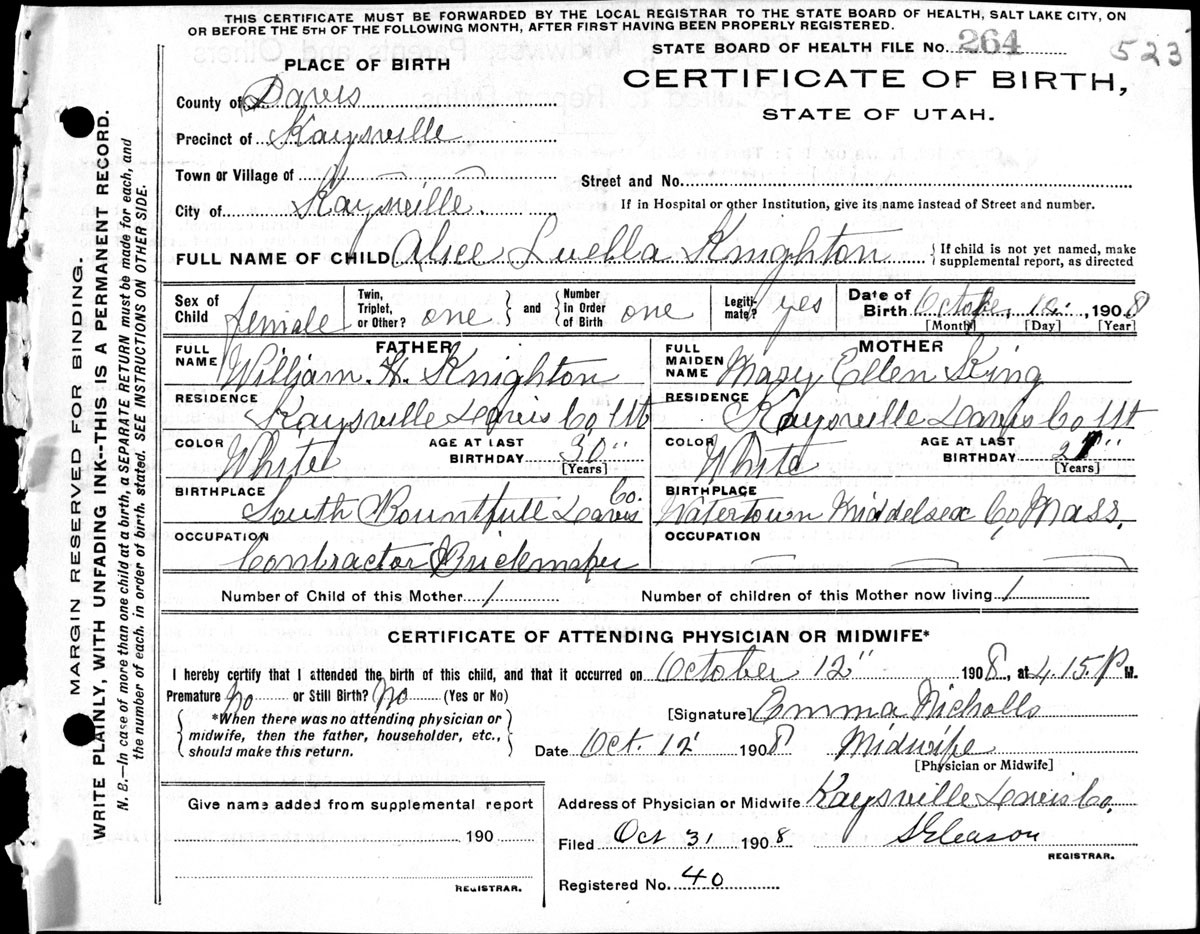 THIS CERTIFICATE MUST BE FORWARDED BY THE LOCAL REGISTRAR TO THE STATE BOARD OF HEALTH, SALT LAKE CITY, ON
OR BEFORE THE 5TH OF THE FOLLOWING MONTH, AFTER FIRST HAVING BEEN PROPERLY REGISTERED.
STATE BOARD OF HEALTH FILE No. 264 523
PLACE OF BIRTH
CERTIFICATE OF BIRTH,
STATE OF UTAH.
County of Davis
Precinct of Kaysville
Town or Village of
Street and No.
City of Kaysville
If in Hospital or other Institution, give its name instead of Street and number.
FULL NAME OF CHILD Alice Luella Knighton { If child is not yet named, make supplemental report, as directed
Sex of Child female Twin, Triplet, or Other? one } and { Number in Order of Birth one Legitimate? yes Date of Birth October, 12, 1908
[Month] [Day] [Year]
FATHER MOTHER
FULL NAME William H. Knighton FULL MAIDEN NAME Mary Ellen King
RESIDENCE Kaysville Davis Co Ut RESIDENCE Kaysville Davis Co Ut
COLOR White AGE AT LAST BIRTHDAY 30 [Years] COLOR White AGE AT LAST BIRTHDAY [Years]
BIRTHPLACE South Bountfull Davis Co. BIRTHPLACE Watertown Middelsex Co, Mass.
OCCUPATION Contractor & Brickmaker OCCUPATION
Number of Child of this Mother 1 Number of children of this Mother now living 1
CERTIFICATE OF ATTENDING PHYSICIAN OR MIDWIFE*
I hereby certify that I attended the birth of this child, and that it occurred on October 12" 1908, at 4.15. P M.
Premature No or Still Birth? No (Yes or No)
{ *When there was no attending physician or midwife, then the father, householder, etc., should make this return. }
[Signature] Emma Nicholls
Date Oct. 12 1908 Midwife
[Physician or Midwife]
Give name added from supplemental report
190
REGISTRAR.
Address of Physician or Midwife Kaysville Davis Co,
Filed Oct 31 1908 S Gleason
REGISTRAR.
Registered No. 40
MARGIN RESERVED FOR BINDING.
WRITE PLAINLY, WITH UNFADING INK--THIS IS A PERMANENT RECORD.
N. B.—In case of more than one child at a birth, a SEPARATE RETURN must be made for each, and
the number of each, in order of birth, stated. SEE INSTRUCTIONS ON OTHER SIDE.